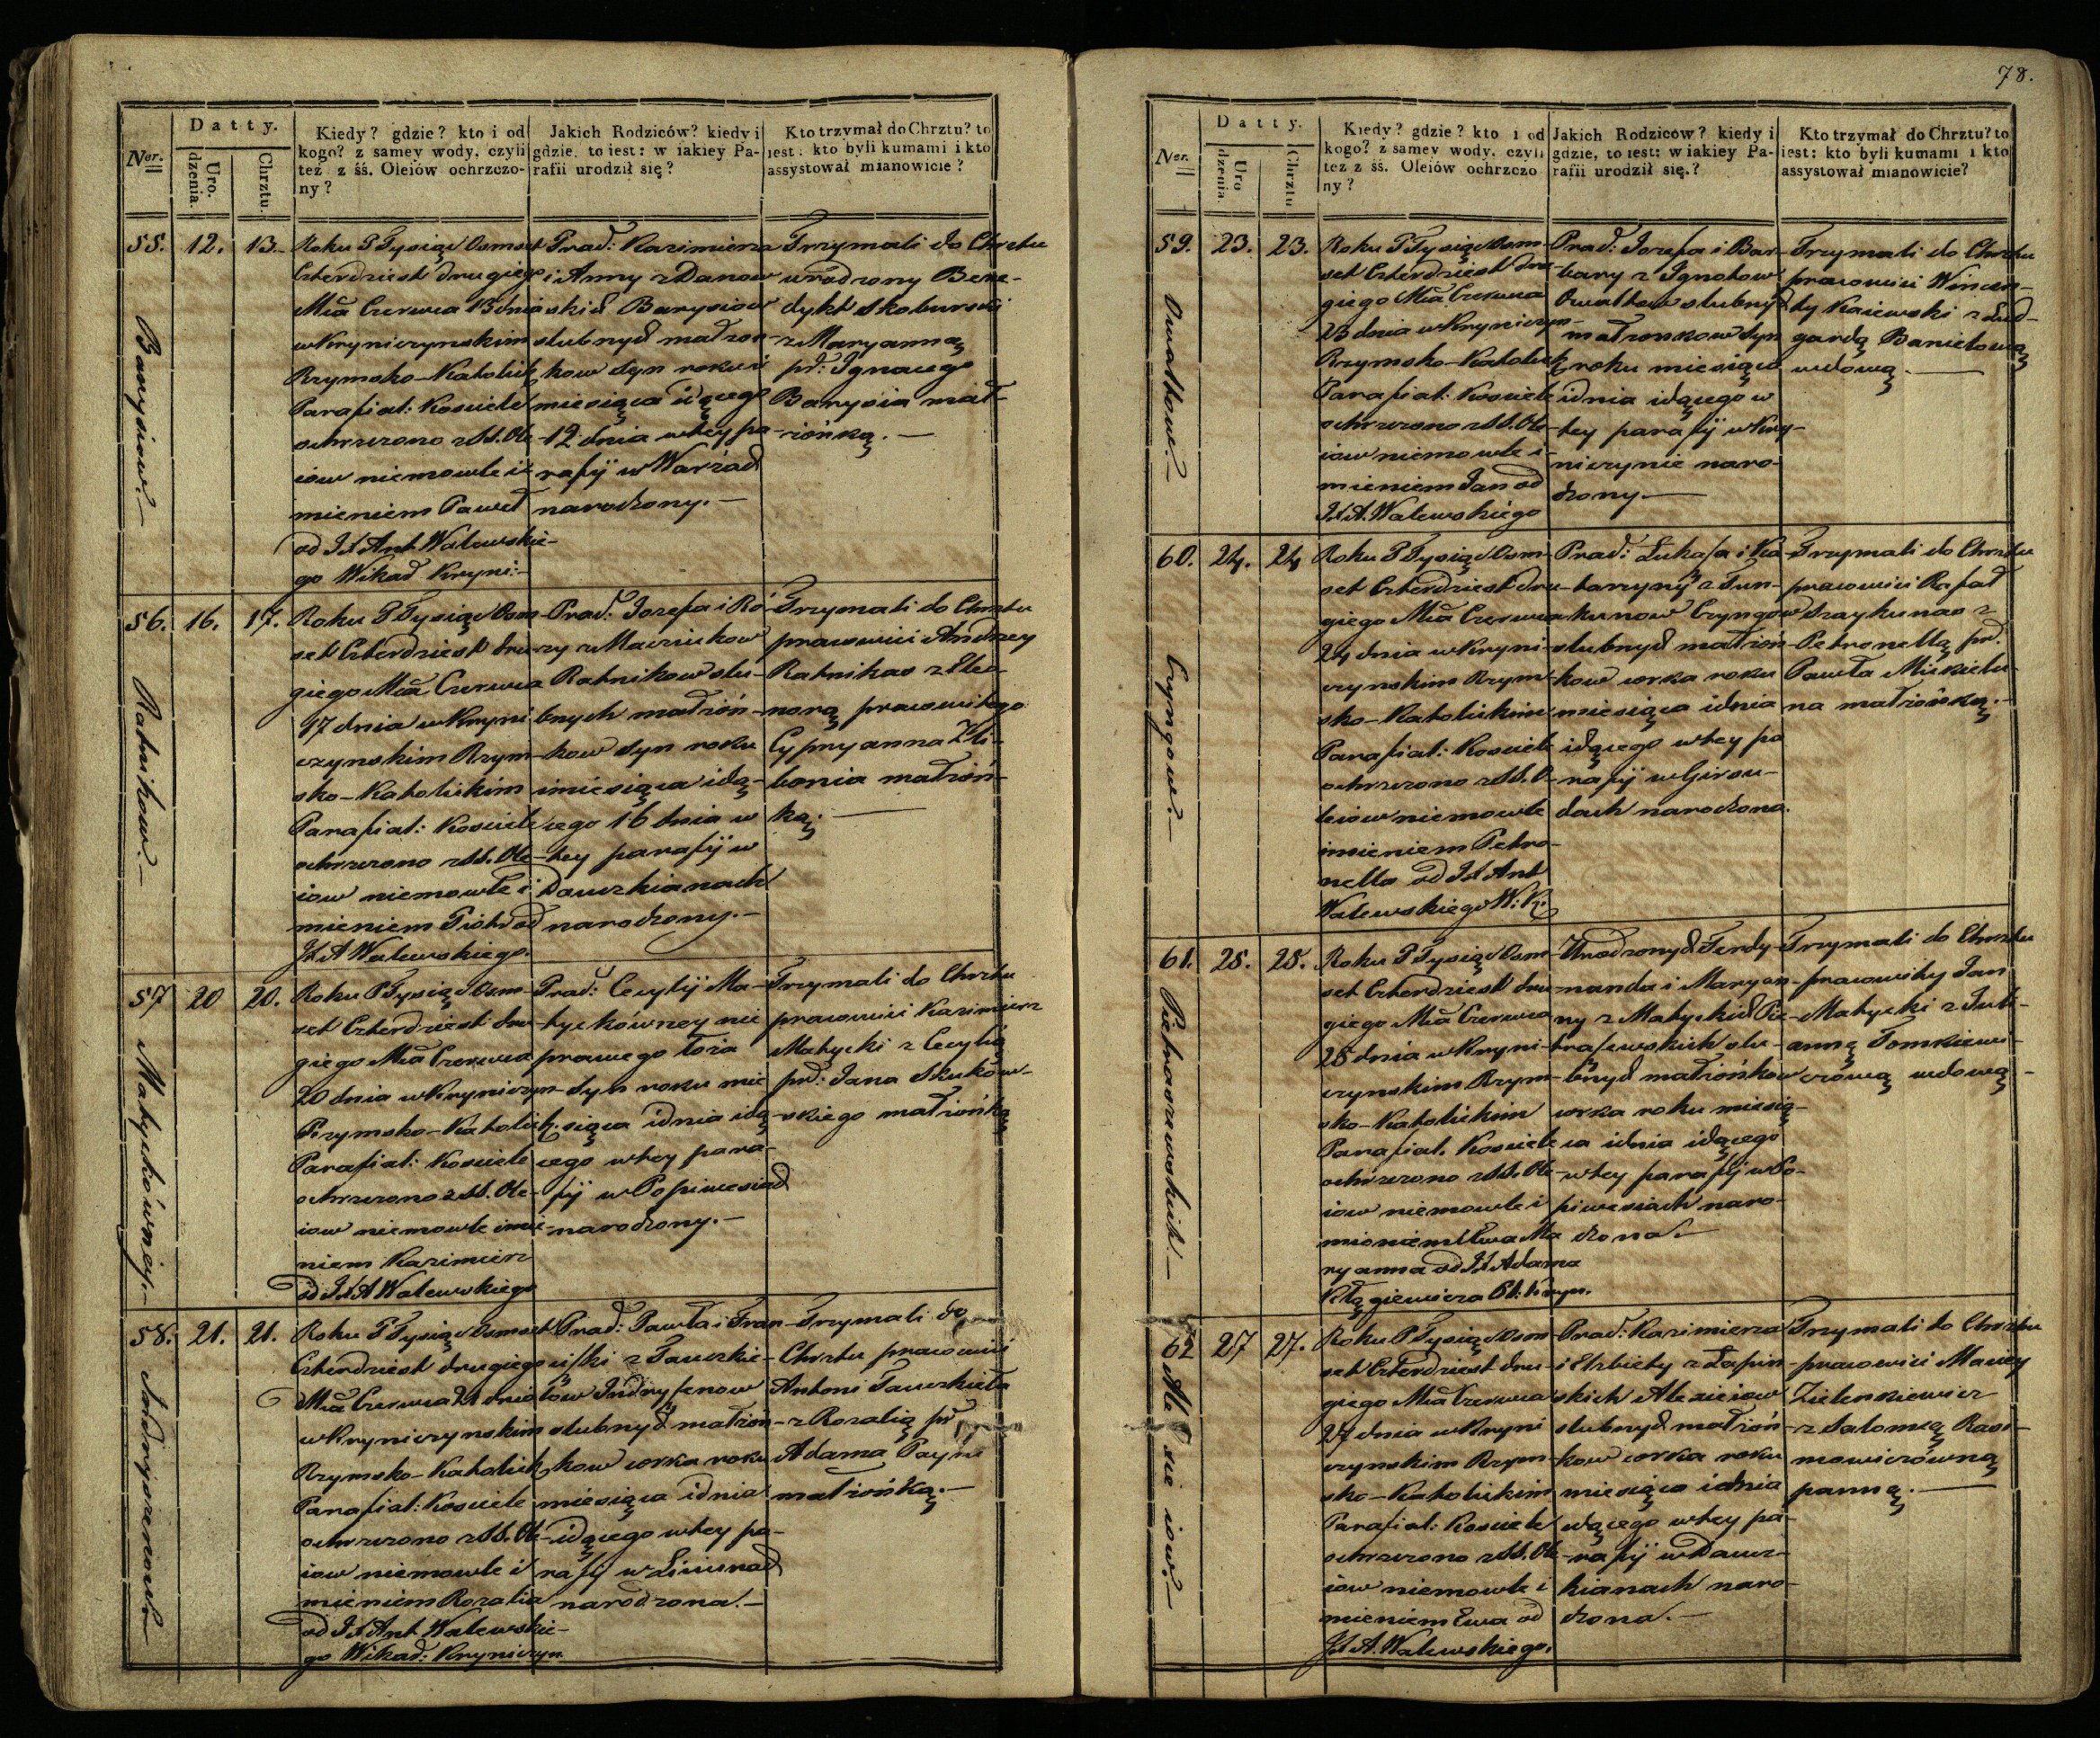 Datty.
Ner.
Uro. dzenia.
Chrztu.
Kiedy? gdzie? kto i od
kogo? z samey wody, czyli
też z śś. Oleiów ochrzczo-
ny?
Jakich Rodziców? kiedy i
gdzie, to iest: w iakiey Pa-
rafii urodził się?
Kto trzymał do Chrztu? to
iest: kto byli kumami i kto
assystował mianowicie?
55. 12. 13.
Barysiow.
Roku P Tysiąc Osmset
Czterdziest drugiego
Mca Czerwca 13 dnia
w Kryniczynskim
Rzymsko-Katolick
Parafial: Kosciele
ochrzczono z SS. Ole-
iow niemowle i
mieniem Paweł
od JX Ant Walewskie-
go Wikar Kryni:
Prac: Kazimierza
i Anny z Danow
skich Barysiow
slubnych małżon
kow syn roku i
miesiąca idącego
12 dnia w tey pa-
rafij w Warżach
narodzony.
Trzymali do Chrztu
urodzony Bene-
dykt Skoburski
z Maryanną
pr: Ignacego
Barysia małż-
żonką.
56. 16. 17.
Ratnikow.
Roku P Tysiąc Osm
set Czterdziest dru
giego Mca Czerwca
17 dnia w Kryni
czynskim Rzym-
sko-Katolickim
Parafial: Kosciele
ochrzczono z SS. Ole-
iow niemowle i
mieniem Piotr od
JX A Walewskiego.
Prac: Jozefa i Ró-
zy z Macziukow
Ratnikow slu-
bnych małżon-
kow syn roku
i miesiąca idą-
cego 16 dnia w
tey parafij w
Dauczkianach
narodzony.
Trzymali do Chrztu
pracowici Andrzey
Ratnikas z Eleo-
norą pracowitego
Cypryanna
bonia małżon-
ką.
57 20 20.
Matyckówney.
Roku P Tysiąc Osm-
set Czterdziest dru
giego Mca Czerwca
20 dnia w Kryniczyn-
Rzymsko-Katolick.
Parafial: Kosciele
ochrzczono z SS. Ole-
iow niemowle imie-
niem Kazimierz
od JX A Walewskiego
Prac: Cecylij Ma-
tyckówney nie
prawego łoża
syn roku mie
siąca i dnia idą
cego w tey para-
fij w Popiwesiach
narodzony.
Trzymali do Chrztu
pracowici Kazimierz
Matycki z Cecylią
pr: Jana Skuków-
skiego małżonką
58. 21. 21.
Roku P Tysiąc Osmset
Czterdziest drugiego
Mca Czerwca 21 dnia
w Kryniczynskim
Rzymsko-Katolick
Parafial: Kosciele
ochrzczono z SS. Ole-
iow niemowle i
mieniem Rozalia
od JX Ant Walewskie-
go Wikar: Kryniczyn.
Prac: Pawła i Fran
ciszki z Tauczkie-
low Indryszenow
slubnych małżon-
kow corka roku
miesiąca i dnia
idącego w tey pa-
rafij w Liciunach
narodzona.
Trzymali do
Chrztu pracowici
Antoni Tauczkieła
z Rozalią pr
Adama Payne
małżonką.
78.
Datty.
Ner.
Uro dzenia
Chrztu
Kiedy? gdzie? kto i od
kogo? z samey wody, czyli
też z śś. Oleiów ochrzczo
ny?
Jakich Rodziców? kiedy i
gdzie, to iest: w iakiey Pa-
rafii urodził się?
Kto trzymał do Chrztu? to
iest: kto byli kumami i kto
assystował mianowicie?
59. 23. 23.
Owałtow.
Roku P Tysiąc Osm-
set Czterdziest dru-
giego Mca Czerwca
23 dnia w Kryniczyn-
Rzymsko-Katolick
Parafial: Kosciele
ochrzczono z SS. Ole-
iow niemowle i-
mieniem Jan od
JX A. Walewskiego
Prac: Jozefa i Bar-
bary z Ignatow
Owałtow slubnych
małżonkow syn
roku miesiąca
i dnia idącego w
tey parafij w Kry-
niczynie naro-
dzony.
Trzymali do Chrztu
pracowici Wincen-
ty Kaiewski z Lud-
gardą Banielową
wdową.
60. 24. 24
Czyngow.
Roku P Tysiąc Osm-
set Czterdziest dru-
giego Mca Czerwca
24 dnia w Kryni-
czynskim Rzym-
sko-Katolickim
Parafial: Kosciele
ochrzczono z SS. O-
leiow niemowle
imieniem Petro-
nella od JX Ant
Walewskiego W: K.
Prac: Łukasza i Ka-
tarzyny z Tun-
kunow Czyngow
slubnych małżon-
kow corka roku
miesiąca i dnia
idącego w tey pa
rafij w Girsu-
dach narodzona.
Trzymali do Chrztu
pracowici Rafał
Szaykunas z
Petronellą pr.
Pawła Mickielu-
na małżonką.
61. 25. 25.
Pietraszewskich.
Roku P Tysiąc Osm-
set Czterdziest dru-
giego Mca Czerwca
25 dnia w Kryni-
czynskim Rzym-
sko-Katolickim
Parafial. Kosciele
ochrzczono z SS. Ole-
iow niemowle i
mieniem Ewa Ma
ryanna od JX Adama
Urodzonych Ferdy-
nanda i Maryan-
ny z Matyckich Pie-
traszewskich slu-
bnych małżonkow
corka roku miesią-
ca i dnia idącego
w tey parafij w Po-
piwesiach naro-
dzona.
Trzymali do Chrztu
pracowity Jan
Matycki z Juli-
anną Tomkiewi-
czową wdową
62 27 27.
Ale xie iow.
Roku P Tysiąc Osm
set Czterdziest dru-
giego Mca Czerwca
27 dnia w Kryni
czynskim Rzym-
sko-Katolickim
Parafial: Kosciele
ochrzczono z SS. Ole
iow niemowle i
mieniem Ewa od
JX A. Walewskiego.
Prac: Kazimierza
i Elzbiety z Łapin-
skich Alexieiow
slubnych małżon-
kow corka roku
miesiąca i dnia
idącego w tey pa-
rafij w Daucz-
kianach naro-
dzona.
Trzymali do Chrztu
pracowici Maciey
Zielenkiewicz
z Salomeą Rasi-
mowiczówną
panną.